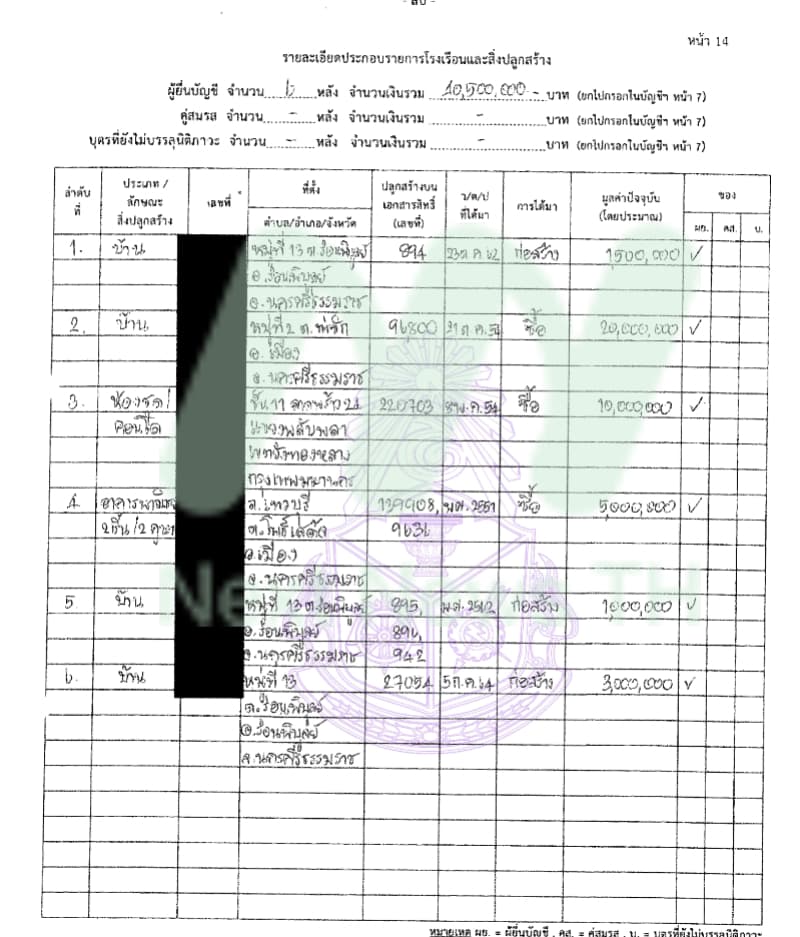 หน้า 14
รายละเอียดประกอบรายการโรงเรือนและสิ่งปลูกสร้าง
ผู้ยื่นบัญชี จำนวน 6 หลัง จำนวนเงินรวม 40,500,000 - บาท (ยกไปกรอกในบัญชีฯ หน้า 7)
คู่สมรส จำนวน - หลัง จำนวนเงินรวม - บาท (ยกไปกรอกในบัญชีฯ หน้า 7)
บุตรที่ยังไม่บรรลุนิติภาวะ จำนวน - หลัง จำนวนเงินรวม - บาท (ยกไปกรอกในบัญชีฯ หน้า 7)
ลำดับที่ ประเภท / ลักษณะสิ่งปลูกสร้าง เลขที่ * ที่ตั้ง ตำบล/อำเภอ/จังหวัด ปลูกสร้างบนเอกสารสิทธิ์ (เลขที่) ว/ด/ป ที่ได้มา การได้มา มูลค่าปัจจุบัน (โดยประมาณ) ของ ผย. คส. บ.
1. บ้าน หมู่ที่ 13 ต.ร่อนพิบูลย์ 894 ก่อสร้าง 1,500,000 ✓
อ.ร่อนพิบูลย์
จ.นครศรีธรรมราช
2. บ้าน หมู่ที่ 2 96800 31 ต.ค.54 ซื้อ 20,000,000 ✓
อ.เมือง
จ.นครศรีธรรมราช
3. ห้องชุด/ ชั้น 11 ลาดพร้าว 220703 ซื้อ 10,000,000 ✓
คอนโด แขวงพลับพลา
เขตวังทองหลาง
กรุงเทพมหานคร
4. อาคารพาณิชย์ 139908, พ.ศ.2551 ซื้อ 5,000,000 ✓
2ชั้น/2 คูหา ต.โพธิ์เสด็จ 9636
อ.เมือง
จ.นครศรีธรรมราช
5 บ้าน หมู่ที่ 13 ต.ร่อนพิบูลย์ 895, ก่อสร้าง 1,000,000 ✓
อ.ร่อนพิบูลย์ 896,
จ.นครศรีธรรมราช 942
6. บ้าน หมู่ที่ 13 27054 ก่อสร้าง 3,000,000 ✓
ต.ร่อนพิบูลย์
อ.ร่อนพิบูลย์
จ.นครศรีธรรมราช
หมายเหตุ ผย. = ผู้ยื่นบัญชี , คส. = คู่สมรส , บ. = บุตรที่ยังไม่บรรลุนิติภาวะ